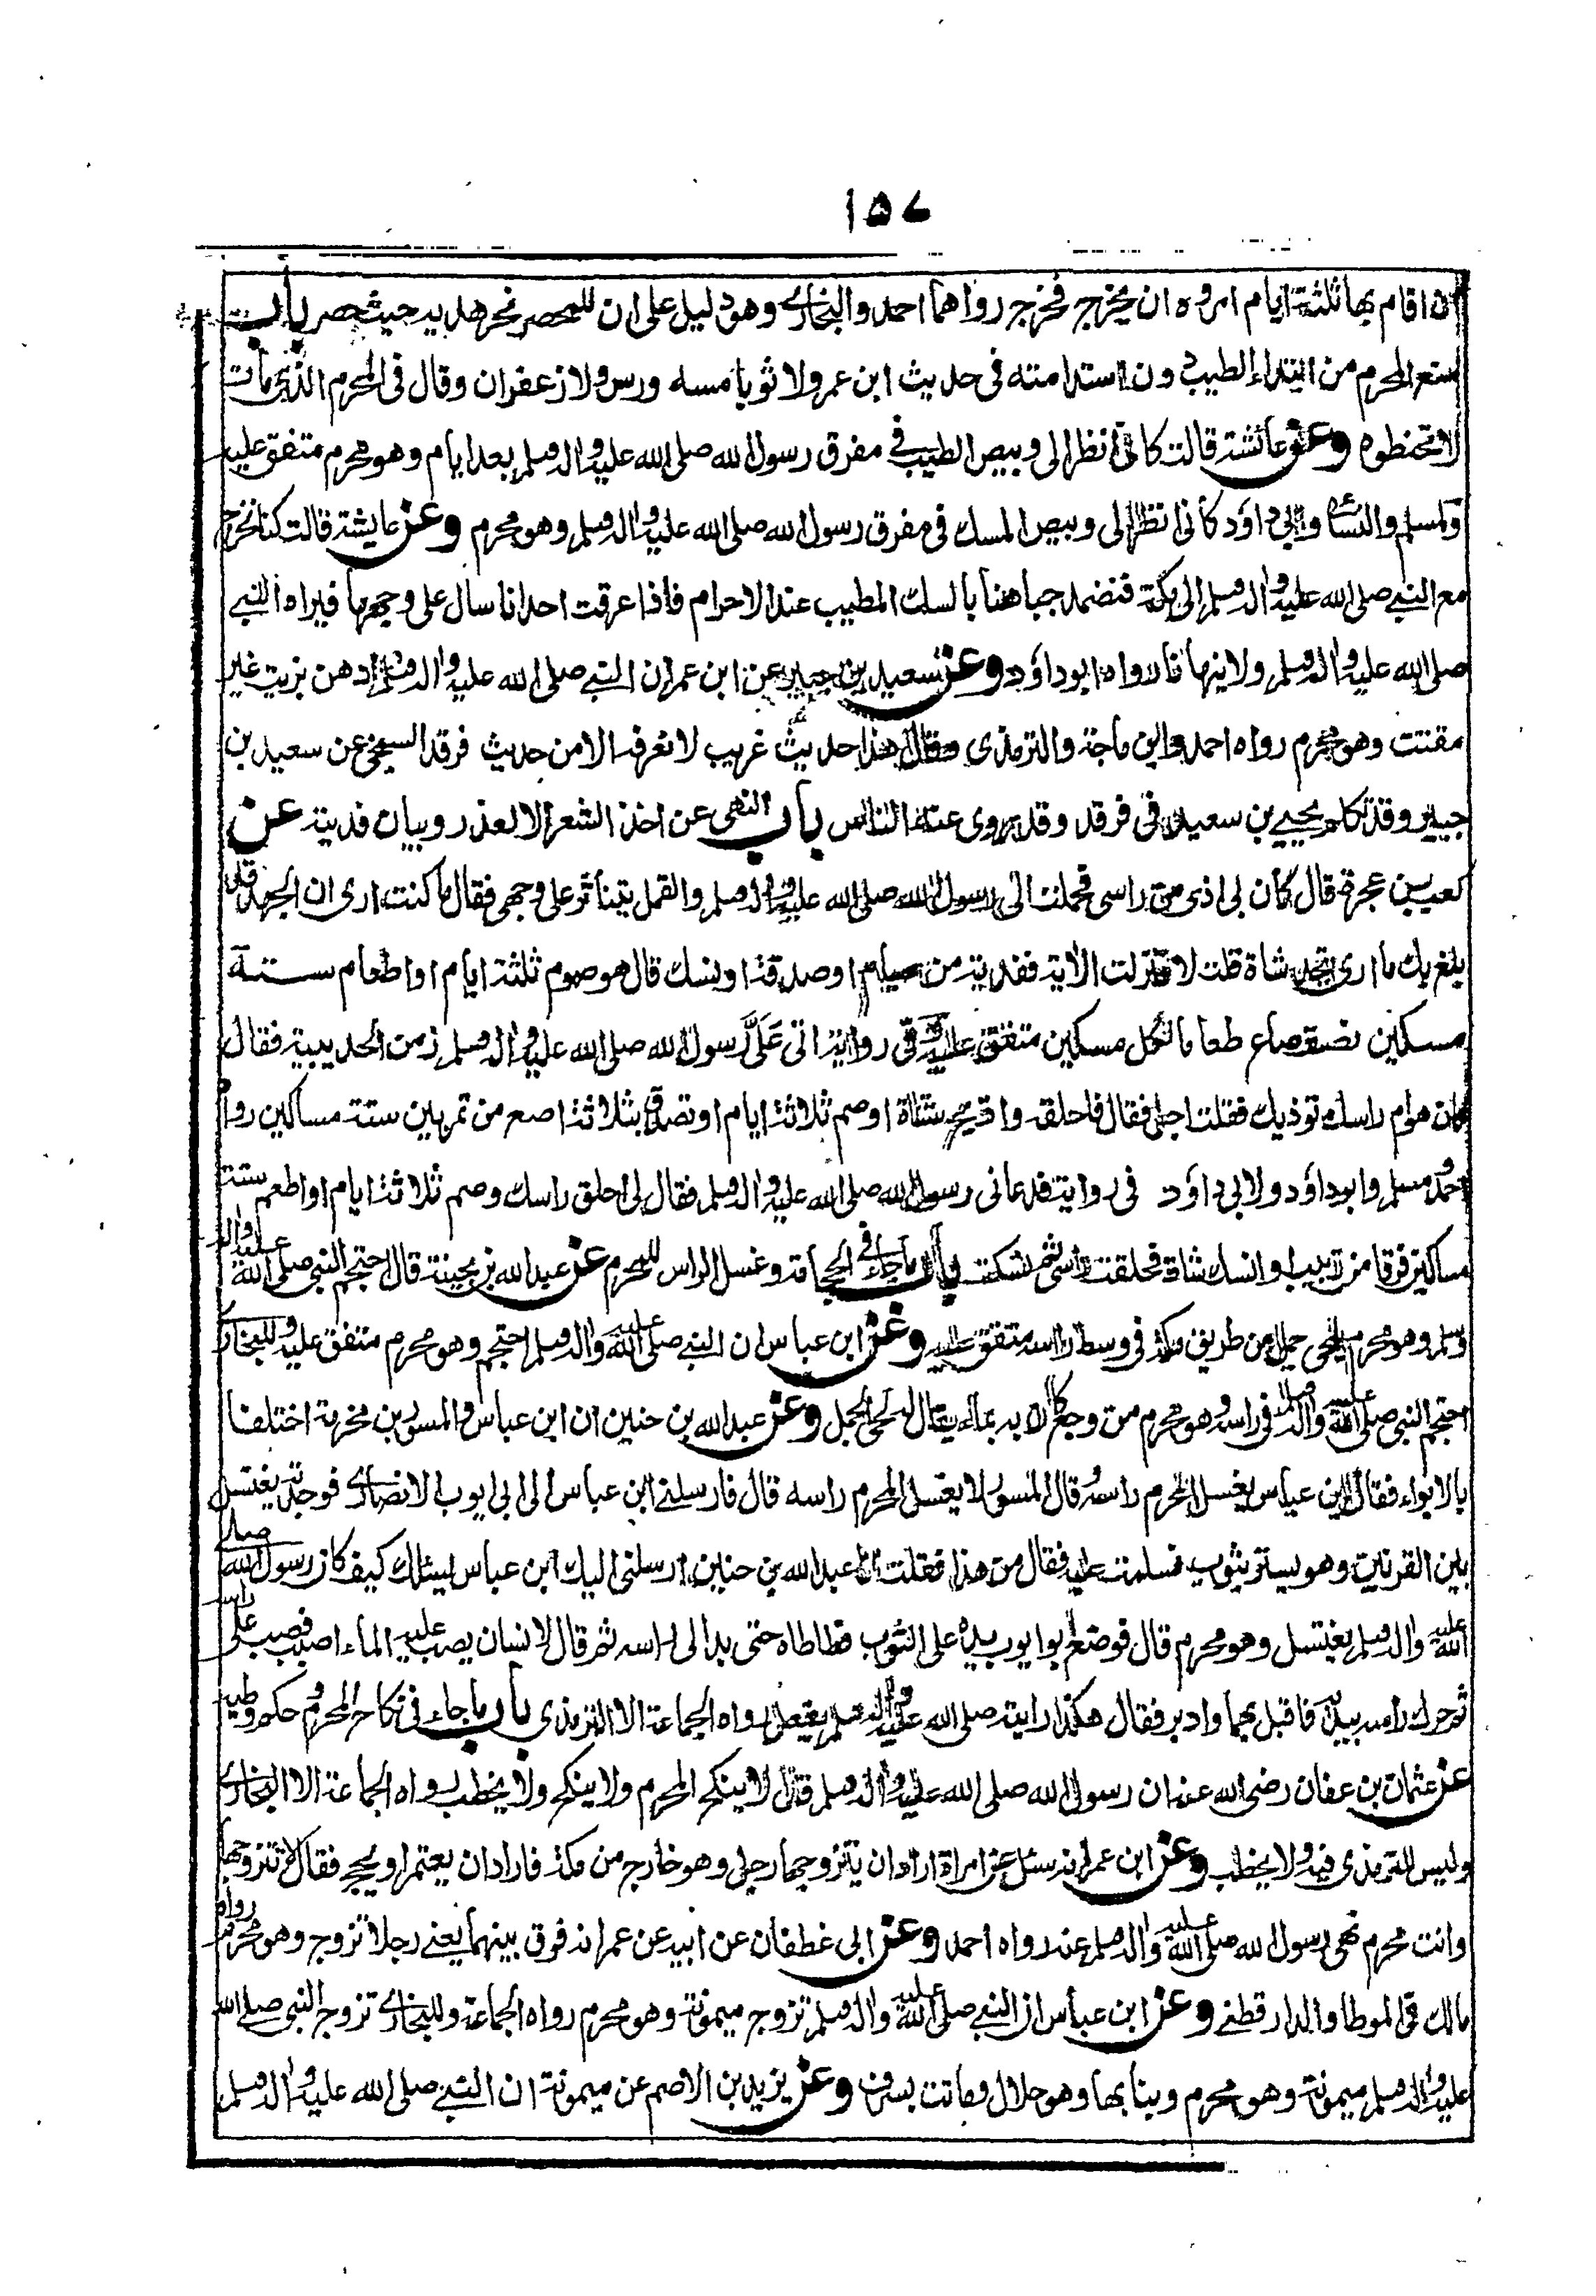 ١٥٧
ان اقام بها ثلثة ايام امروه ان يخرج فخرج رواهما احمد والبخاري وهو دليل على ان للمحصر نحر هديه حيث حصر باب
منع المحرم من ابتداء الطيب دون استدامته فى حديث ابن عمر ولا ثوبا مسه ورس ولا زعفران وقال فى المحرم الذى مات
لا تحنطوه وعن عائشة قالت كانى انظر الى وبيص الطيب في مفرق رسول الله صلى الله عليه واله وسلم بعد ايام وهو محرم متفق عليه
ولمسلم والنسائى وابى داؤد كأنى انظر الى وبيص المسك فى مفرق رسول الله صلى الله عليه واله وسلم وهو محرم وعن عايشة قالت كنا نخرج
مع النبي صلى الله عليه واله وسلم الى مكة فنضمد جباهنا بالسك المطيب عند الاحرام فاذا عرقت احدانا سال على وجهها فيراه النبي
صلى الله عليه واله وسلم ولا ينهانا رواه ابو داؤد وعن سعيد بن جبير عن ابن عمر ان النبي صلى الله عليه واله وسلم ادهن بزيت غير
مقتت وهو محرم رواه احمد وابن ماجة والترمذى وقال هذا حديث غريب لا نعرفه الا من حديث فرقد السبخي عن سعيد بن
جبير وقد تكلم يحيى بن سعيد فى فرقد وقد روى عنه الناس باب النهى عن اخذ الشعر الا لعذر وبيان فديته عن
كعب بن عجرة قال كان بى اذى من راسى فحملت الى رسول الله صلى الله عليه واله وسلم والقمل يتناثر على وجهى فقال ما كنت ارى ان الجهد قد
بلغ بك ما ارى اتجد شاة قلت لا فنزلت الاية ففدية من صيام او صدقة او نسك قال هو صوم ثلثة ايام او اطعام ستة
مسكين نصف صاع طعاما لكل مسكين متفق عليه وفى رواية اتى عَلَىَّ رسول الله صلى الله عليه واله وسلم زمن الحديبية فقال
كان هوام راسك توذيك فقلت اجل فقال فاحلقه واذبح شاة او صم ثلاثة ايام او تصدق بثلاثة اصع من تمر بين ستة مساكين رواه
احمد ومسلم وابو داؤد ولابى داؤد فى رواية فدعانى رسول الله صلى الله عليه واله وسلم فقال لى احلق راسك وصم ثلاثة ايام او اطعم ستة
مساكين فرقا من زبيب او انسك شاة فحلقت راسى ثم نسكت باب ما جاء في الحجامة وغسل الراس للمحرم عن عبد الله بن بحينة قال احتجم النبى صلى الله عليه واله
وسلم وهو محرم بلحى جمل من طريق مكة فى وسط راسه متفق عليه وعن ابن عباس ان النبي صلى الله عليه واله وسلم احتجم وهو محرم متفق عليه وللبخارى
احتجم النبى صلى الله عليه واله وسلم فى راسه وهو محرم من وجع كان به بماء يقال له لحى الجمل وعن عبد الله بن حنين ان ابن عباس والمسور بن مخرمة اختلفا
بالابواء فقال ابن عباس يغسل المحرم راسه وقال المسور لا يغسل المحرم راسه قال فارسلني ابن عباس الى ابى ايوب الانصارى فوجدته يغتسل
بين القرنين وهو يستتر بثوب فسلمت عليه فقال من هذا فقلت انا عبد الله بن حنين ارسلنى اليك ابن عباس ليسئلك كيف كان رسول الله صلى
الله عليه واله وسلم يغتسل وهو محرم قال فوضع ابو ايوب يده على الثوب فطاطاه حتى بدا لى راسه ثم قال لانسان يصب عليه الماء اصبب فصب على راسه
ثم حرك راسه بيديه فاقبل بهما وادبر فقال هكذا رايته صلى الله عليه واله وسلم يفعل رواه الجماعة الا الترمذى باب ما جاء فى نكاح المحرم وحكم وطيه
عن عثمان بن عفان رضى الله عنه ان رسول الله صلى الله عليه واله وسلم قال لا ينكح المحرم ولا ينكح ولا يخطب رواه الجماعة الا البخارى
وليس للترمذى فيه ولا يخطب وعن ابن عمر انه سئل عن امراة اراد ان يتزوجها رجل وهو خارج من مكة فاراد ان يعتمر او يحج فقال لا تتزوجها
وانت محرم نهى رسول الله صلى الله عليه واله وسلم عنه رواه احمد وعن ابى غطفان عن ابيه عن عمر انه فرق بينهما يعنے رجلا تزوج وهو محرم رواه
مالك فى الموطا والدارقطنے وعن ابن عباس ان النبي صلى الله عليه واله وسلم تزوج ميمونة وهو محرم رواه الجماعة وللبخارى تزوج النبى صلى الله
عليه واله وسلم ميمونة وهو محرم وبنا بها وهو حلال وماتت بسرف وعن يزيد بن الاصم عن ميمونة ان النبي صلى الله عليه واله وسلم